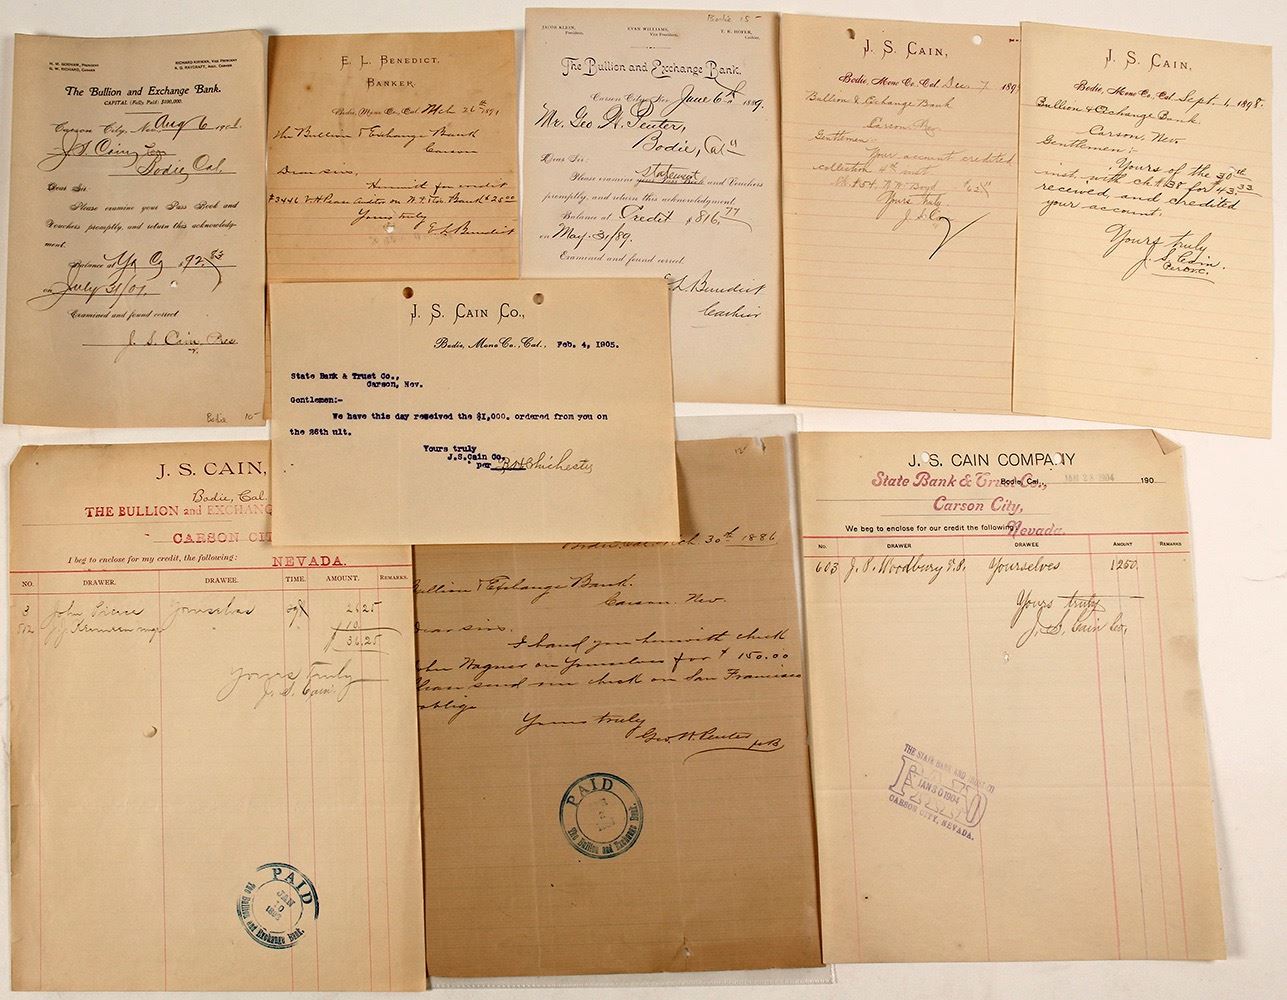 H. M. GORHAM, PRESIDENT
G. W. RICHARD, CASHIER
RICHARD KIRMAN, VICE PRESIDENT
H. G. RAYCRAFT, ASST. CASHIER
The Bullion and Exchange Bank.
CAPITAL (Fully Paid) $100,000.
Carson City, Nev., Aug 6 1901.
J. S. Cain
Bodie, Cal.
Dear Sir.
Please examine your Pass Book and
Vouchers promptly, and return this acknowledg-
ment.
Balance at Yr Cr $92.83
on July 31/01.
Examined and found correct
J. S. Cain, Pres
Bodie 10-
E. L. BENEDICT,
BANKER.
Bodie, Mono Co., Cal. Mch 26th 1891
The Bullion & Exchange Bank
Carson
Dear Sirs,
I remit for credit
#3446 V H Pease Auditor on W. F. & Co. Bank $25.00
Yours truly
E L Benedict
Bodie 15-
JACOB KLEIN,
President.
EVAN WILLIAMS,
Vice President.
T. R. HOFER,
Cashier.
The Bullion and Exchange Bank.
Carson City, Nev. June 6th 1889.
Mr. Geo W. Peuter,
Bodie, Cal
Dear Sir:
Please examine your Pass Book and Vouchers
statement
promptly, and return this acknowledgment.
Balance at Credit $816.77
on May 31/89.
Examined and found correct
E L Benedict
Cashier
J. S. CAIN,
Bodie, Mono Co., Cal. Dec 7 189
Bullion & Exchange Bank
Carson Nev
Gentlemen:
Your account credited
collection 4th inst
No 454. N. W. Boyd
Yours truly
J. S. Cain
J. S. CAIN,
Bodie, Mono Co., Cal. Sept. 1, 1898.
Bullion & Exchange Bank.
Carson, Nev.
Gentlemen:-
Yours of the 30th
inst. with ch # 38 for $43.33
received, and credited
your account.
Yours truly
J. S. Cain.
J. S. CAIN CO.,
Bodie, Mono Co., Cal., Feb. 4, 1905.
State Bank & Trust Co.,
Carson, Nev.
Gentlemen:-
We have this day received the $1,000. ordered from you on
the 26th ult.
Yours truly
J.S.Cain Co.
per B H Chichester
J. S. CAIN,
Bodie, Cal.
THE BULLION and EXCHANG
CARSON CIT
I beg to enclose for my credit, the following:
NEVADA.
NO. DRAWER. DRAWEE. TIME. AMOUNT. REMARKS.
3 John Pierce Yourselves 26.25
512 10
$ 36.25
Yours truly
J. S. Cain.
PAID
JAN
10
The Bullion and Exchange Bank.
Bodie, Cal. Mch. 30th 1886
Bullion & Exchange Bank.
Carson. Nev.
Dear sirs.
I hand you herewith check
John Wagner on Yourselves for $150.00
Please send me check on San Francisco
oblige
Yours truly
Geo. W. Peuter
PAID
The Bullion and Exchange Bank.
J. S. CAIN COMPANY
State Bank & Trust Co.,
Bodie, Cal., JAN 28 1904 190
Carson City,
We beg to enclose for our credit the following:
Nevada.
NO. DRAWER DRAWEE AMOUNT REMARKS
603 J. P. Woodbury T.P. Yourselves 1250
Yours truly
J. S. Cain Co.,
THE STATE BANK AND TRUST CO.
PAID
JAN 30 1904
CARSON CITY, NEVADA.